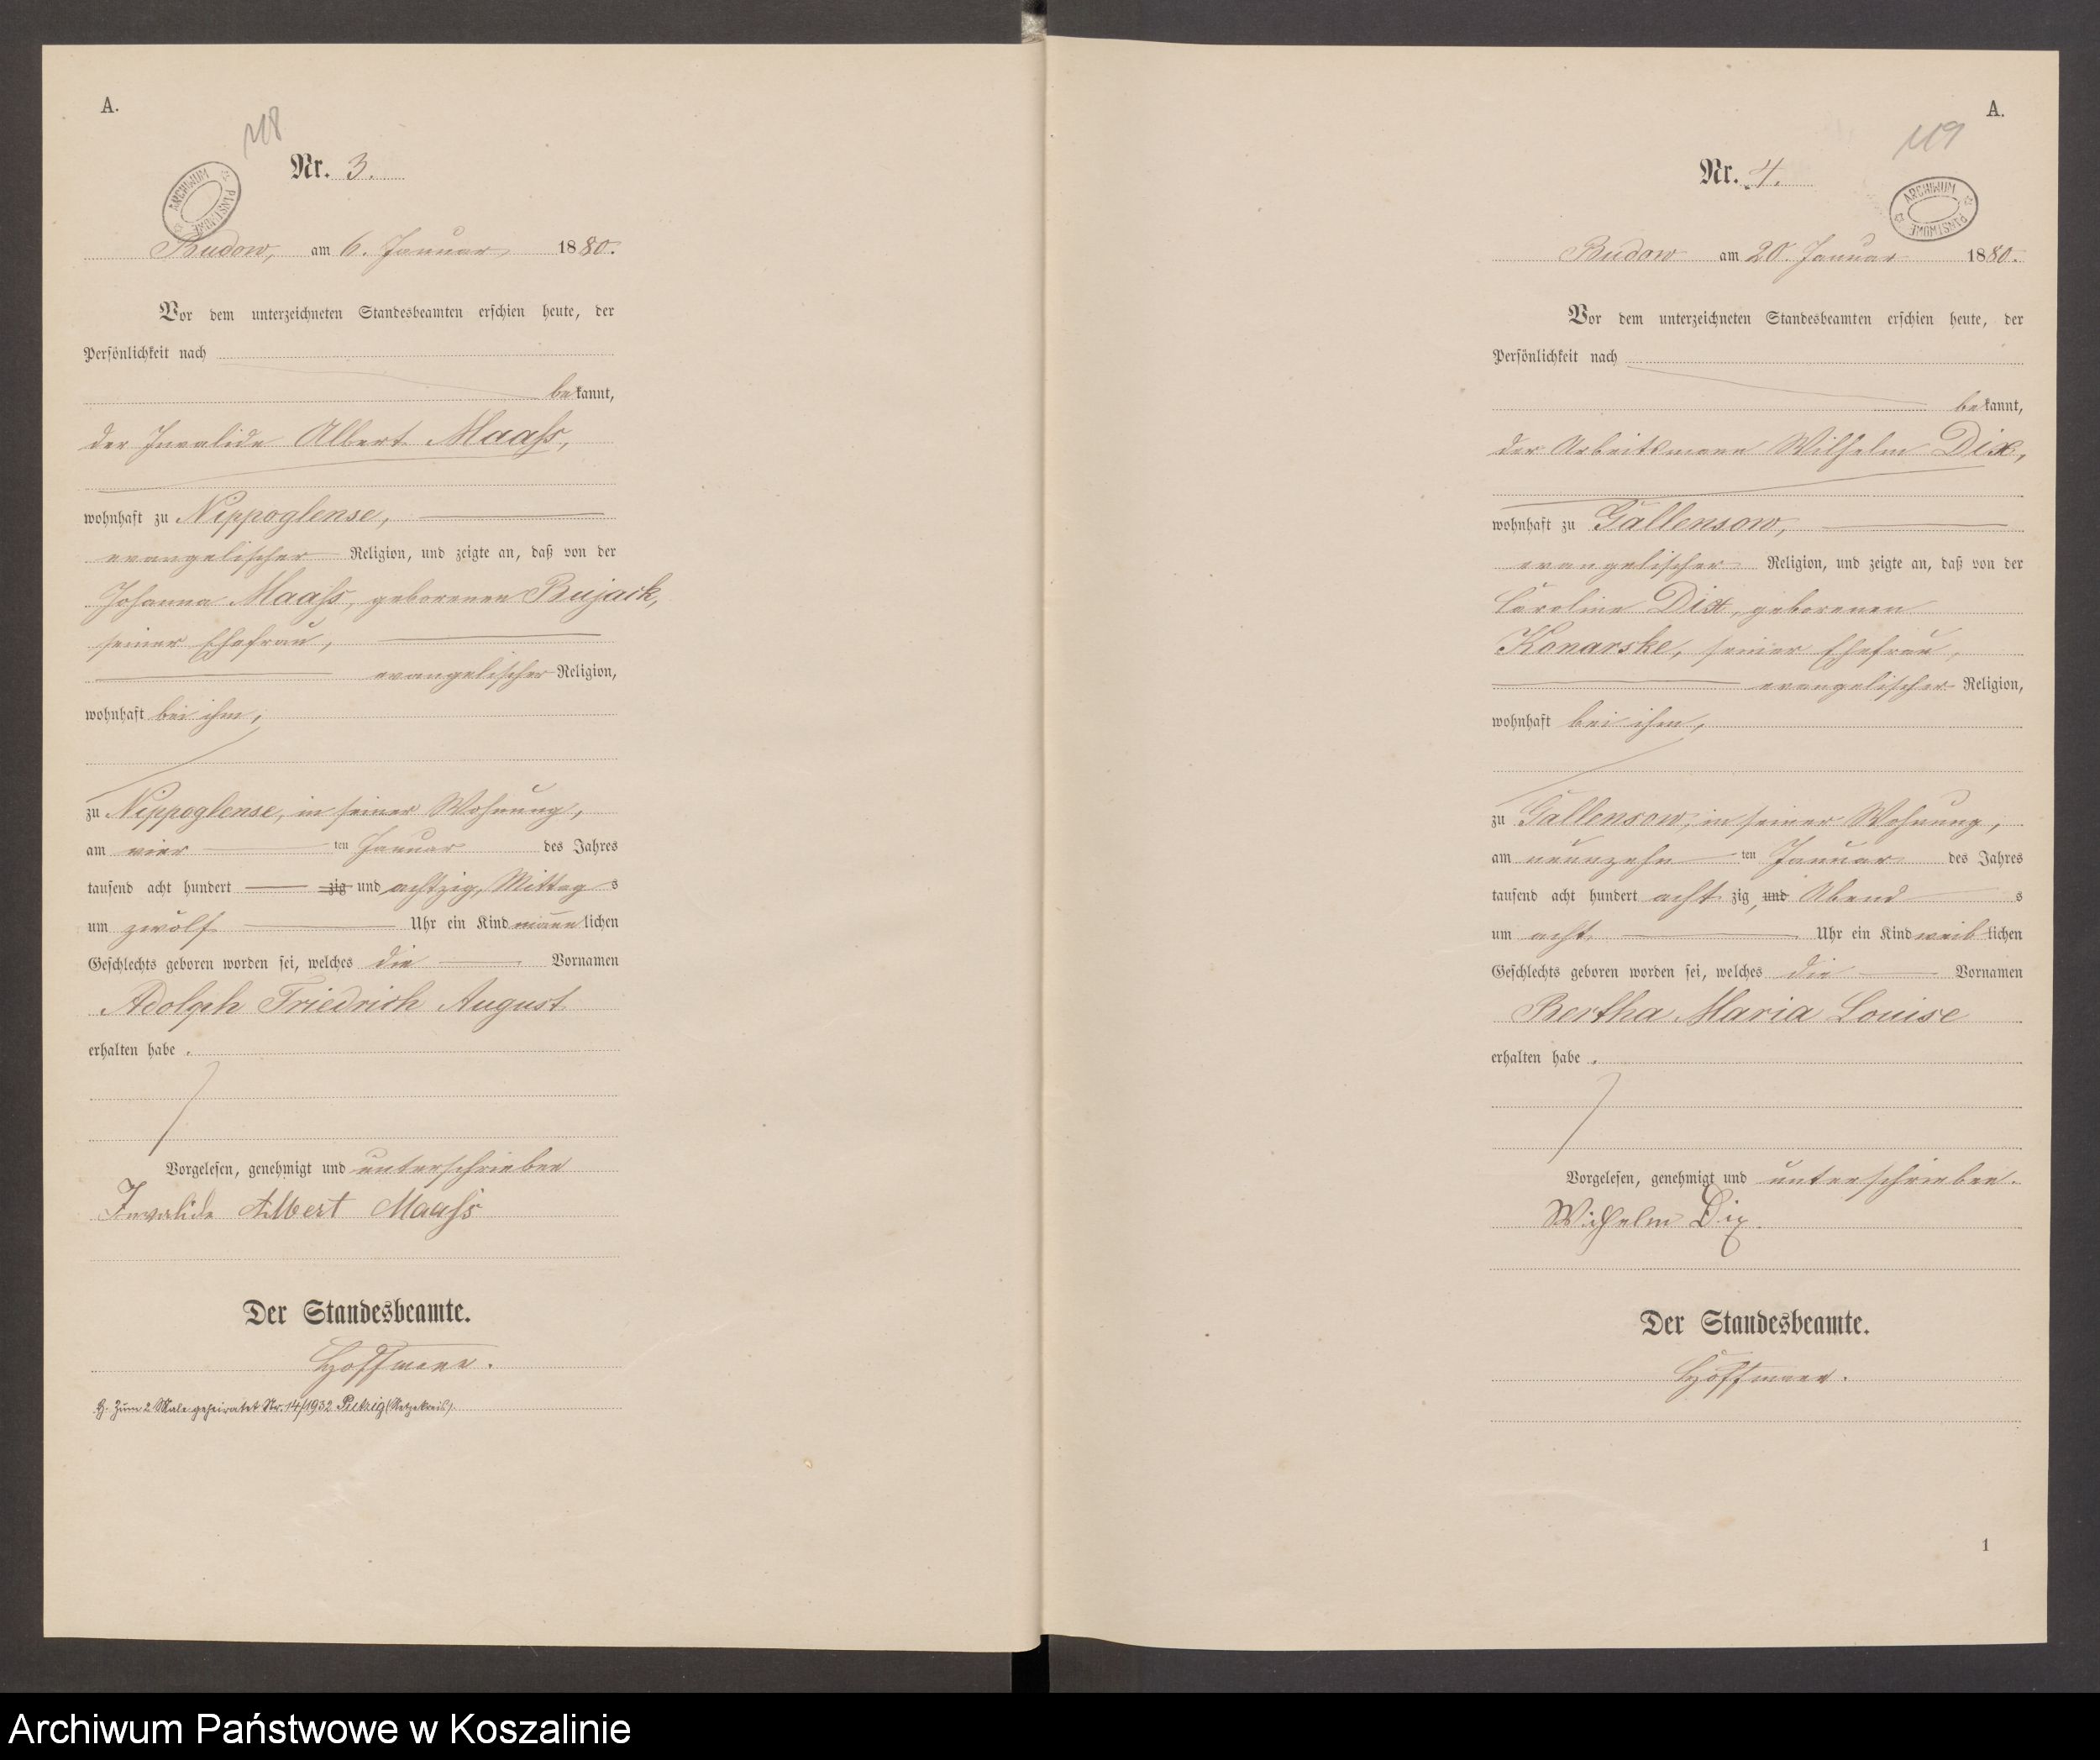 A.
118
Nr. 3.
ARCHIWUM PAŃSTWOWE
Budow, am 6. Januar 1880.
Vor dem unterzeichneten Standesbeamten erschien heute, der
Persönlichkeit nach
bekannt,
der Invalide Albert Maaſs,
wohnhaft zu Nippoglense,
evangelischer Religion, und zeigte an, daß von der
Johanna Maaſs, geborenen Bujack,
seiner Ehefrau,
evangelischer Religion,
wohnhaft bei ihm,
zu Nippoglense, in seiner Wohnung,
am vier ten Januar des Jahres
tausend acht hundert zig und achtzig, Mittag s
um zwölf Uhr ein Kind männlichen
Geschlechts geboren worden sei, welches die Vornamen
Adolph Friedrich August
erhalten habe.
Vorgelesen, genehmigt und unterschrieben
Invalide Albert Maaſs
Der Standesbeamte.
Hoffmann.
H. Zum 2 Male geheiratet Nr. 14/1932 (Netzekreis).
A.
119
Nr. 4.
ARCHIWUM PAŃSTWOWE
Budow am 20. Januar 1880.
Vor dem unterzeichneten Standesbeamten erschien heute, der
Persönlichkeit nach
bekannt,
der Arbeitsmann Wilhelm Dix,
wohnhaft zu Gallensow,
evangelischer Religion, und zeigte an, daß von der
Caroline Dix, geborenen
Konarske, seiner Ehefrau,
evangelischer Religion,
wohnhaft bei ihm,
zu Gallensow, in seiner Wohnung,
am neunzehn ten Januar des Jahres
tausend acht hundert acht zig, und Abend s
um acht Uhr ein Kind weiblichen
Geschlechts geboren worden sei, welches die Vornamen
Bertha Maria Louise
erhalten habe.
Vorgelesen, genehmigt und unterschrieben.
Wilhelm Dix.
Der Standesbeamte.
Hoffmann.
1
Archiwum Państwowe w Koszalinie